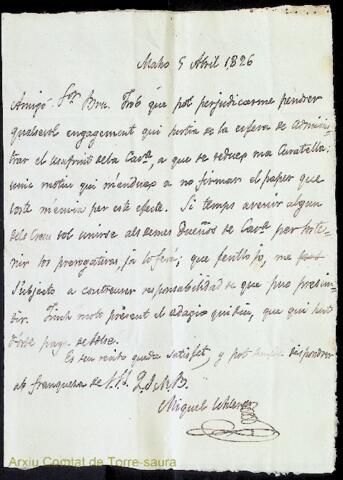 Maho 5 Abril 1826
Amigo Sor. Bru. Trob que pot perjudicarme pendrer
qualsevol engagement qui surtia de la esfera de adminis-
trar el usufruit de la Cavria, a que se redueix ma Curatella:
unic motiu qui m'endueix a no firmar el paper que
vosté m'envia per este efecte. Si temps avenir algun
dels Creu vol unirse als demes dueños de Cavria per soste-
nir los prerogatives, ja lo ferá; que fentlo jo, me
subjecto a contreurer responsabilidad de que puc presin-
dir. Tinch molt present el adagio qui diu, que qui
paga de bolse.
Es seu recibo queda satisfet, y pot disposdrer
ab franquesa de S.S.S. Q.S.M.B.
Miguel
Arxiu Comtal de Torre-saura